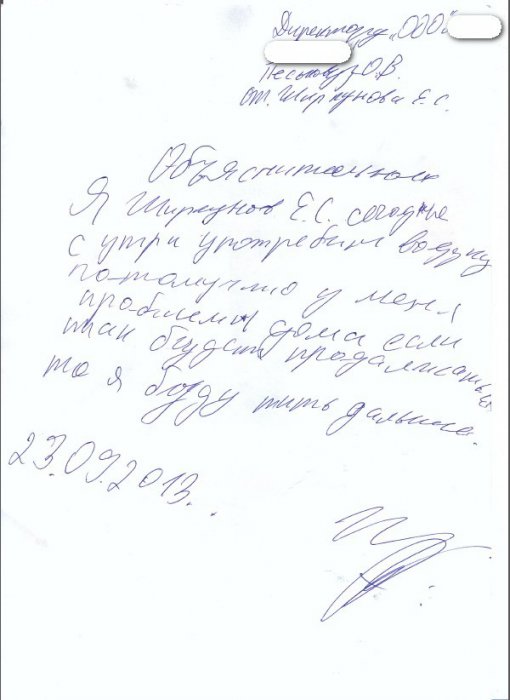 Директору „ООО"
О.В.
от. Ширкунова Е.С.
Объяснительная
Я Ширкунов Е.С. сегодне
с утри употребил водку
по-тому что у меня
проблемы дома если
так будет продалжаться
то я буду пить дальше.
23.09.2013.